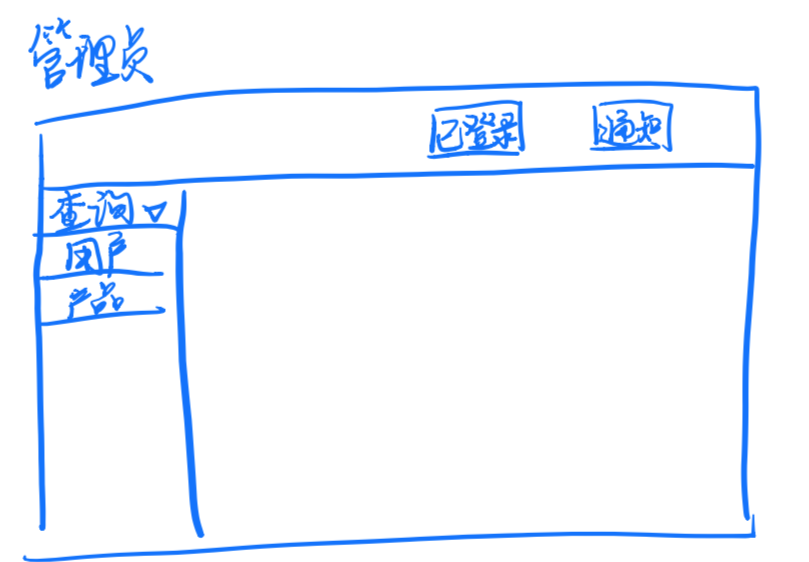 管理员
已登录 通知
查询
用户
产品